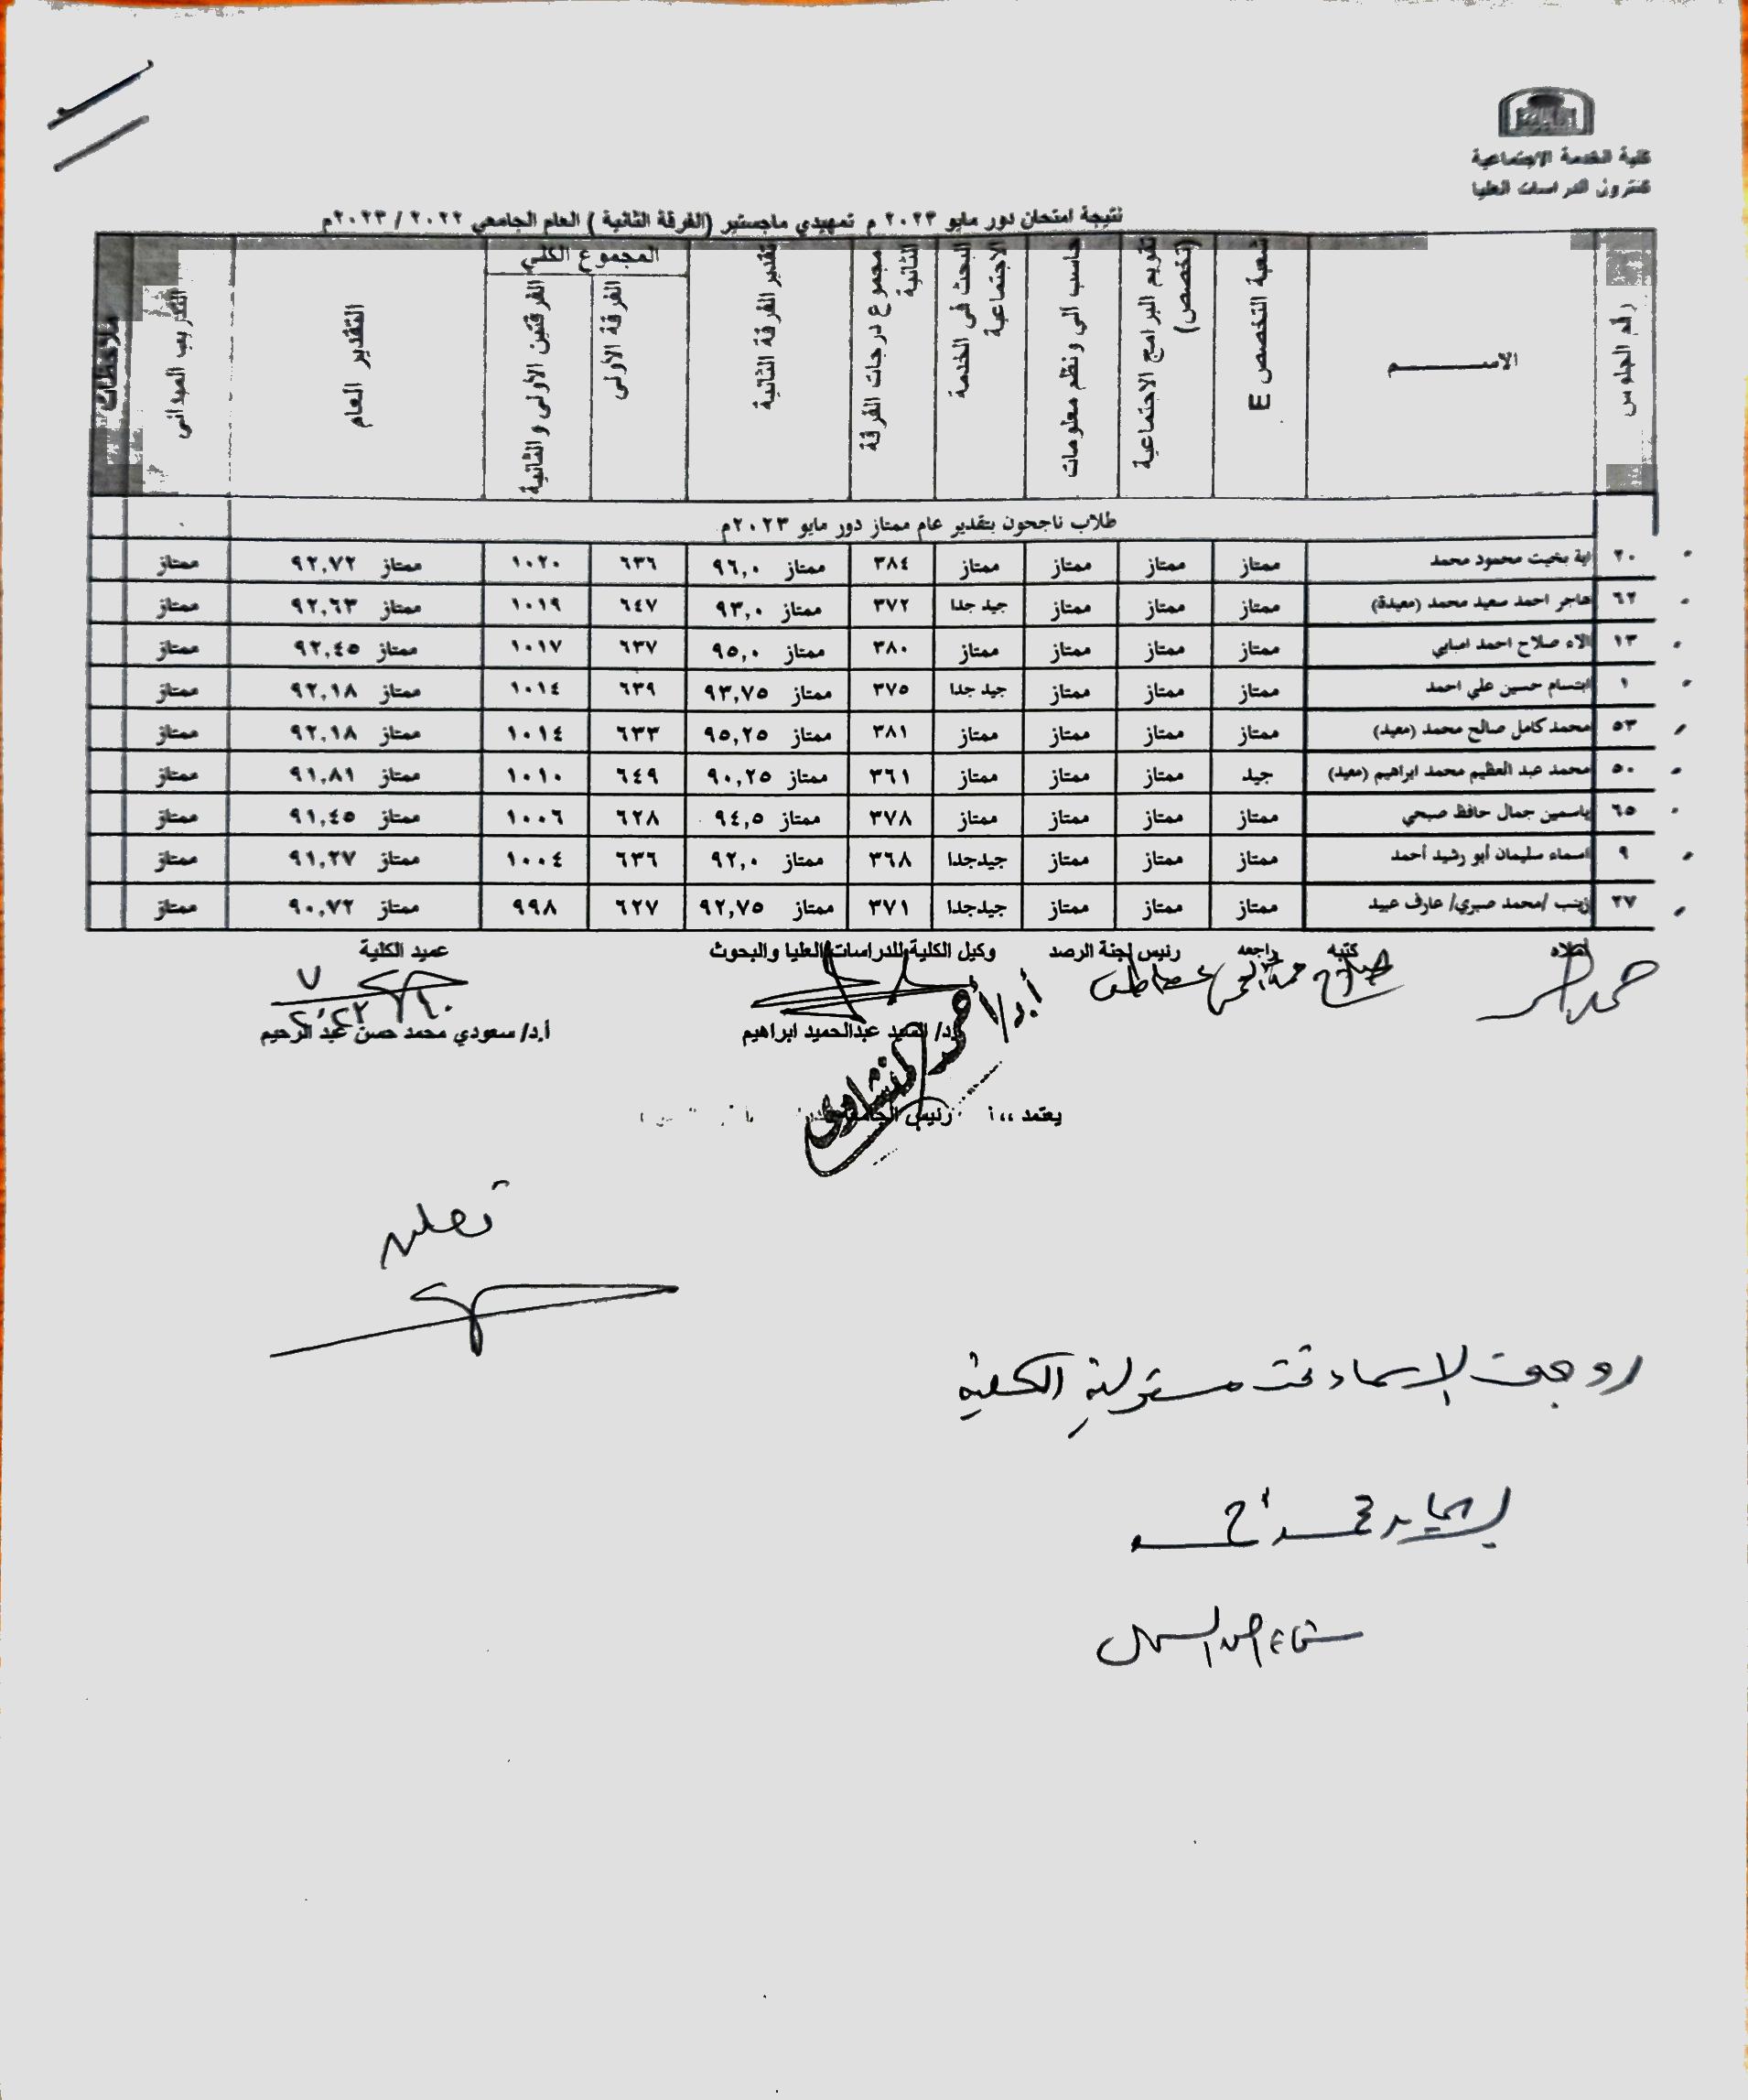 كلية الخدمة الاجتماعية
كنترول الدراسات العليا
نتيجة امتحان دور مايو ٢٠٢٣ م تمهيدي ماجستير (الفرقة الثانية ) العام الجامعي ٢٠٢٢ / ٢٠٢٣م
رقم الجلوس الاســـــــــم شعبة التخصص E تقويم البرامج الاجتماعية (تخصص) حاسب الي ونظم معلومات البحث فى الخدمة الاجتماعية مجموع درجات الفرقة الثانية تقدير الفرقة الثانية المجموع الكلي الفرقة الأولى الفرقتين الأولى والثانية التقدير العام التدريب الميداني ملاحظات
طلاب ناجحون بتقدير عام ممتاز دور مايو ٢٠٢٣م
٢٠ اية بخيت محمود محمد ممتاز ممتاز ممتاز ممتاز ٣٨٤ ممتاز ٩٦,٠ ٦٣٦ ١٠٢٠ ممتاز ٩٢,٧٢ ممتاز
٦٢ هاجر احمد سعيد محمد (معيدة) ممتاز ممتاز ممتاز جيد جدا ٣٧٢ ممتاز ٩٣,٠ ٦٤٧ ١٠١٩ ممتاز ٩٢,٦٣ ممتاز
١٣ الاء صلاح احمد امبابي ممتاز ممتاز ممتاز ممتاز ٣٨٠ ممتاز ٩٥,٠ ٦٣٧ ١٠١٧ ممتاز ٩٢,٤٥ ممتاز
١ ابتسام حسين علي احمد ممتاز ممتاز ممتاز جيد جدا ٣٧٥ ممتاز ٩٣,٧٥ ٦٣٩ ١٠١٤ ممتاز ٩٢,١٨ ممتاز
٥٣ محمد كامل صالح محمد (معيد) ممتاز ممتاز ممتاز ممتاز ٣٨١ ممتاز ٩٥,٢٥ ٦٣٣ ١٠١٤ ممتاز ٩٢,١٨ ممتاز
٥٠ محمد عبد العظيم محمد ابراهيم (معيد) جيد ممتاز ممتاز ممتاز ٣٦١ ممتاز ٩٠,٢٥ ٦٤٩ ١٠١٠ ممتاز ٩١,٨١ ممتاز
٦٥ ياسمين جمال حافظ صبحي ممتاز ممتاز ممتاز ممتاز ٣٧٨ ممتاز ٩٤,٥ ٦٢٨ ١٠٠٦ ممتاز ٩١,٤٥ ممتاز
٩ اسماء سليمان أبو رشيد أحمد ممتاز ممتاز ممتاز جيدجدا ٣٦٨ ممتاز ٩٢,٠ ٦٣٦ ١٠٠٤ ممتاز ٩١,٢٧ ممتاز
٢٧ زينب /محمد صبري/ عارف عبيد ممتاز ممتاز ممتاز جيدجدا ٣٧١ ممتاز ٩٢,٧٥ ٦٢٧ ٩٩٨ ممتاز ٩٠,٧٢ ممتاز
أملاه كتبه راجعه رئيس لجنة الرصد وكيل الكلية للدراسات العليا والبحوث عميد الكلية
أ.د/ السيد عبدالحميد ابراهيم أ.د/ سعودي محمد حسن عبد الرحيم
أ.د/ أحمد المنشاوى
يعتمد ،، رئيس الجامعة
تعلن
روجعت الاسماء تحت مسئولية الكلية